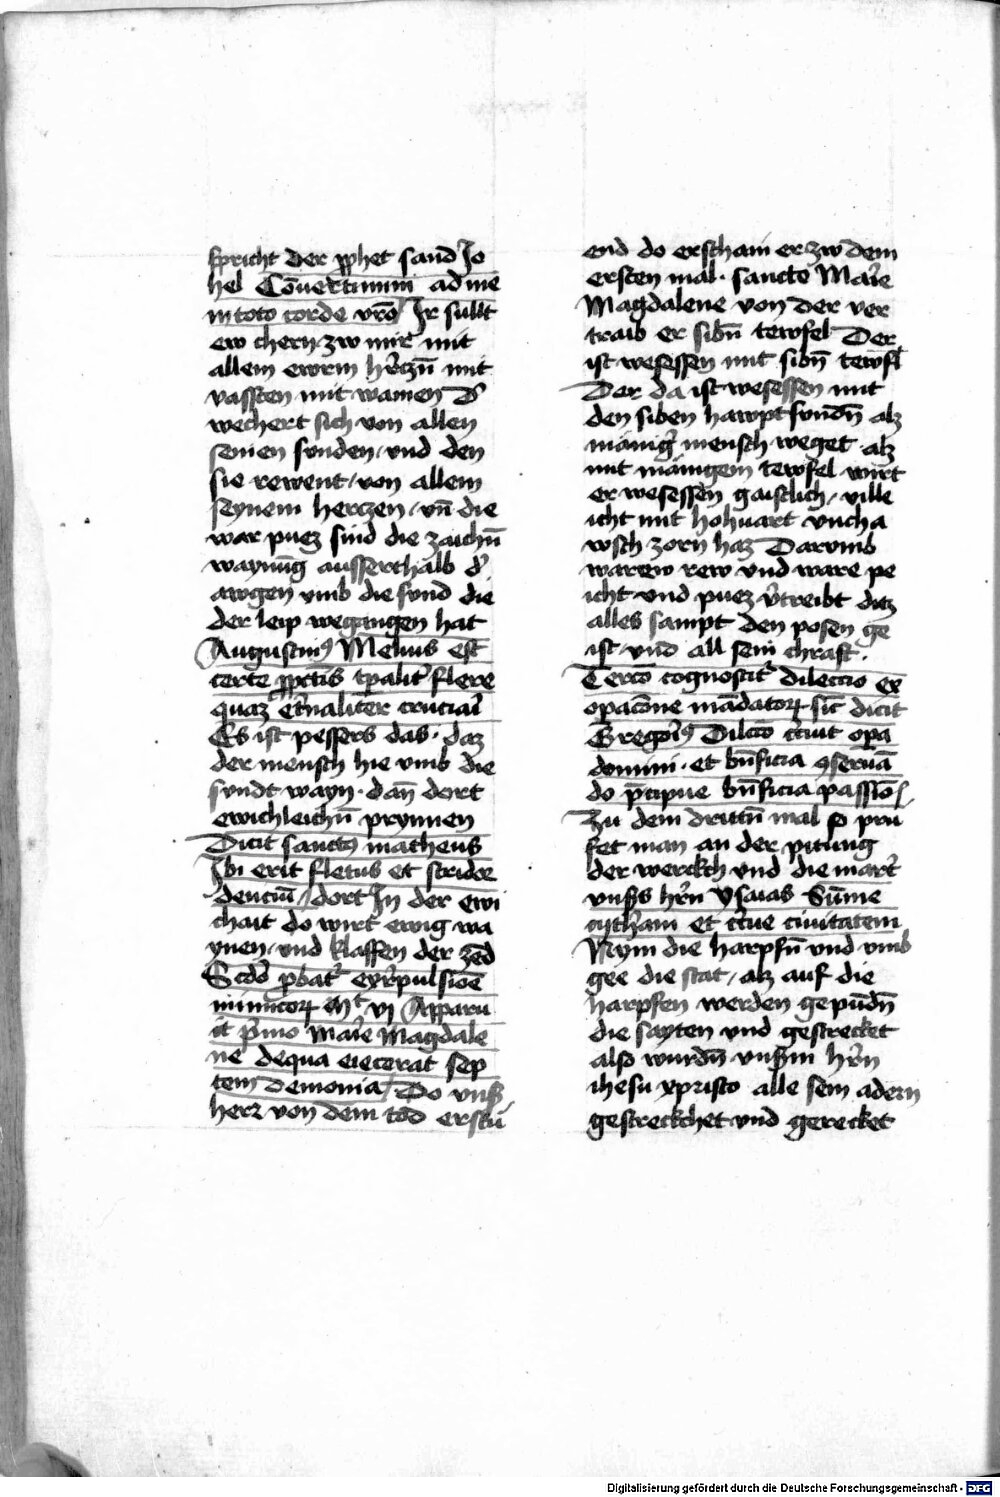 spricht der ꝓphet sand Jo
hel Cōuertimini ad me
in toto corde vr̄o Ir sullt
ew chern zw mir mit
allem ewrm hr̄czn̄ mit
vassten mit wainen D'
wechert sich von allen
seinen sunden / vnd den
sie rewent / von allem
seynem herczen / vn̄ die
war puez sind die zaichn̄
waynūg ausserthalb d'
awgen vmb die sund die
der leip wegangen hat
Augustin9 Melius est
certe tꝑalit' flere
quaz et'naliter cruciari
Es ist pessers das · daz
der mensch hie vmb die
sundt wayn · dan̄ dort
ewichleichn̄ prynnen
Dicit sanctus matheus
Ibi erit fletus et stridor
denciū / dort In der ewi
chait do wirt ewig wa
ynen / vnd klaffen der zēd
Scdo ꝓbat' expulsiōe
inimicoꝝ Mt vj Apparu
it p'mo Marie Magdale
ne de qua eiecerat sep
tem demonia / Do vnß
herr von dem tod erstū
end do erscham er zw dem
ersten mal · sancte Marie
Magdalene von der ver
traib er sibn̄ tewfel Der
ist wesessen mit sibn̄ tewfl
Der da ist wesessen mit
den siben hawpt sundn̄ alz
mainig' mensch weget · alz
mit mainigem tewfel wirt
er wesessen gaistlich / ville
icht mit hohuart vncha
wsch zorn haz Darvmb
warew rew vnd ware pe
icht vnd puez v'treibt ditz
alles sampt den posen ge
ist / vnd all sein chraft ·
Tercō cognoscit' dileccio ex
opacōne mādatoꝝ · sic dicit
Gregori9 Dilcō
domini · et bn̄ficia ꝯseruā
do p̄cipue bn̄ficia passiōis
Zu dem drittn̄ mal so pru
fet man an der pitung
der werckh vnd die marter
vnsers hr̄n Ysaias Sūme
cythāam et circue ciuitatem
Nym die harpfn̄ vnd vmb
gee die stat / alz auf die
harpfen werden gepūdn̄
die sayten vnd gestrecket
also wurdn̄ vnserm hr̄n
ihesu xpristo alle sein adern
gestreckchet vnd gerecket
Digitalisierung gefördert durch die Deutsche Forschungsgemeinschaft - DFG